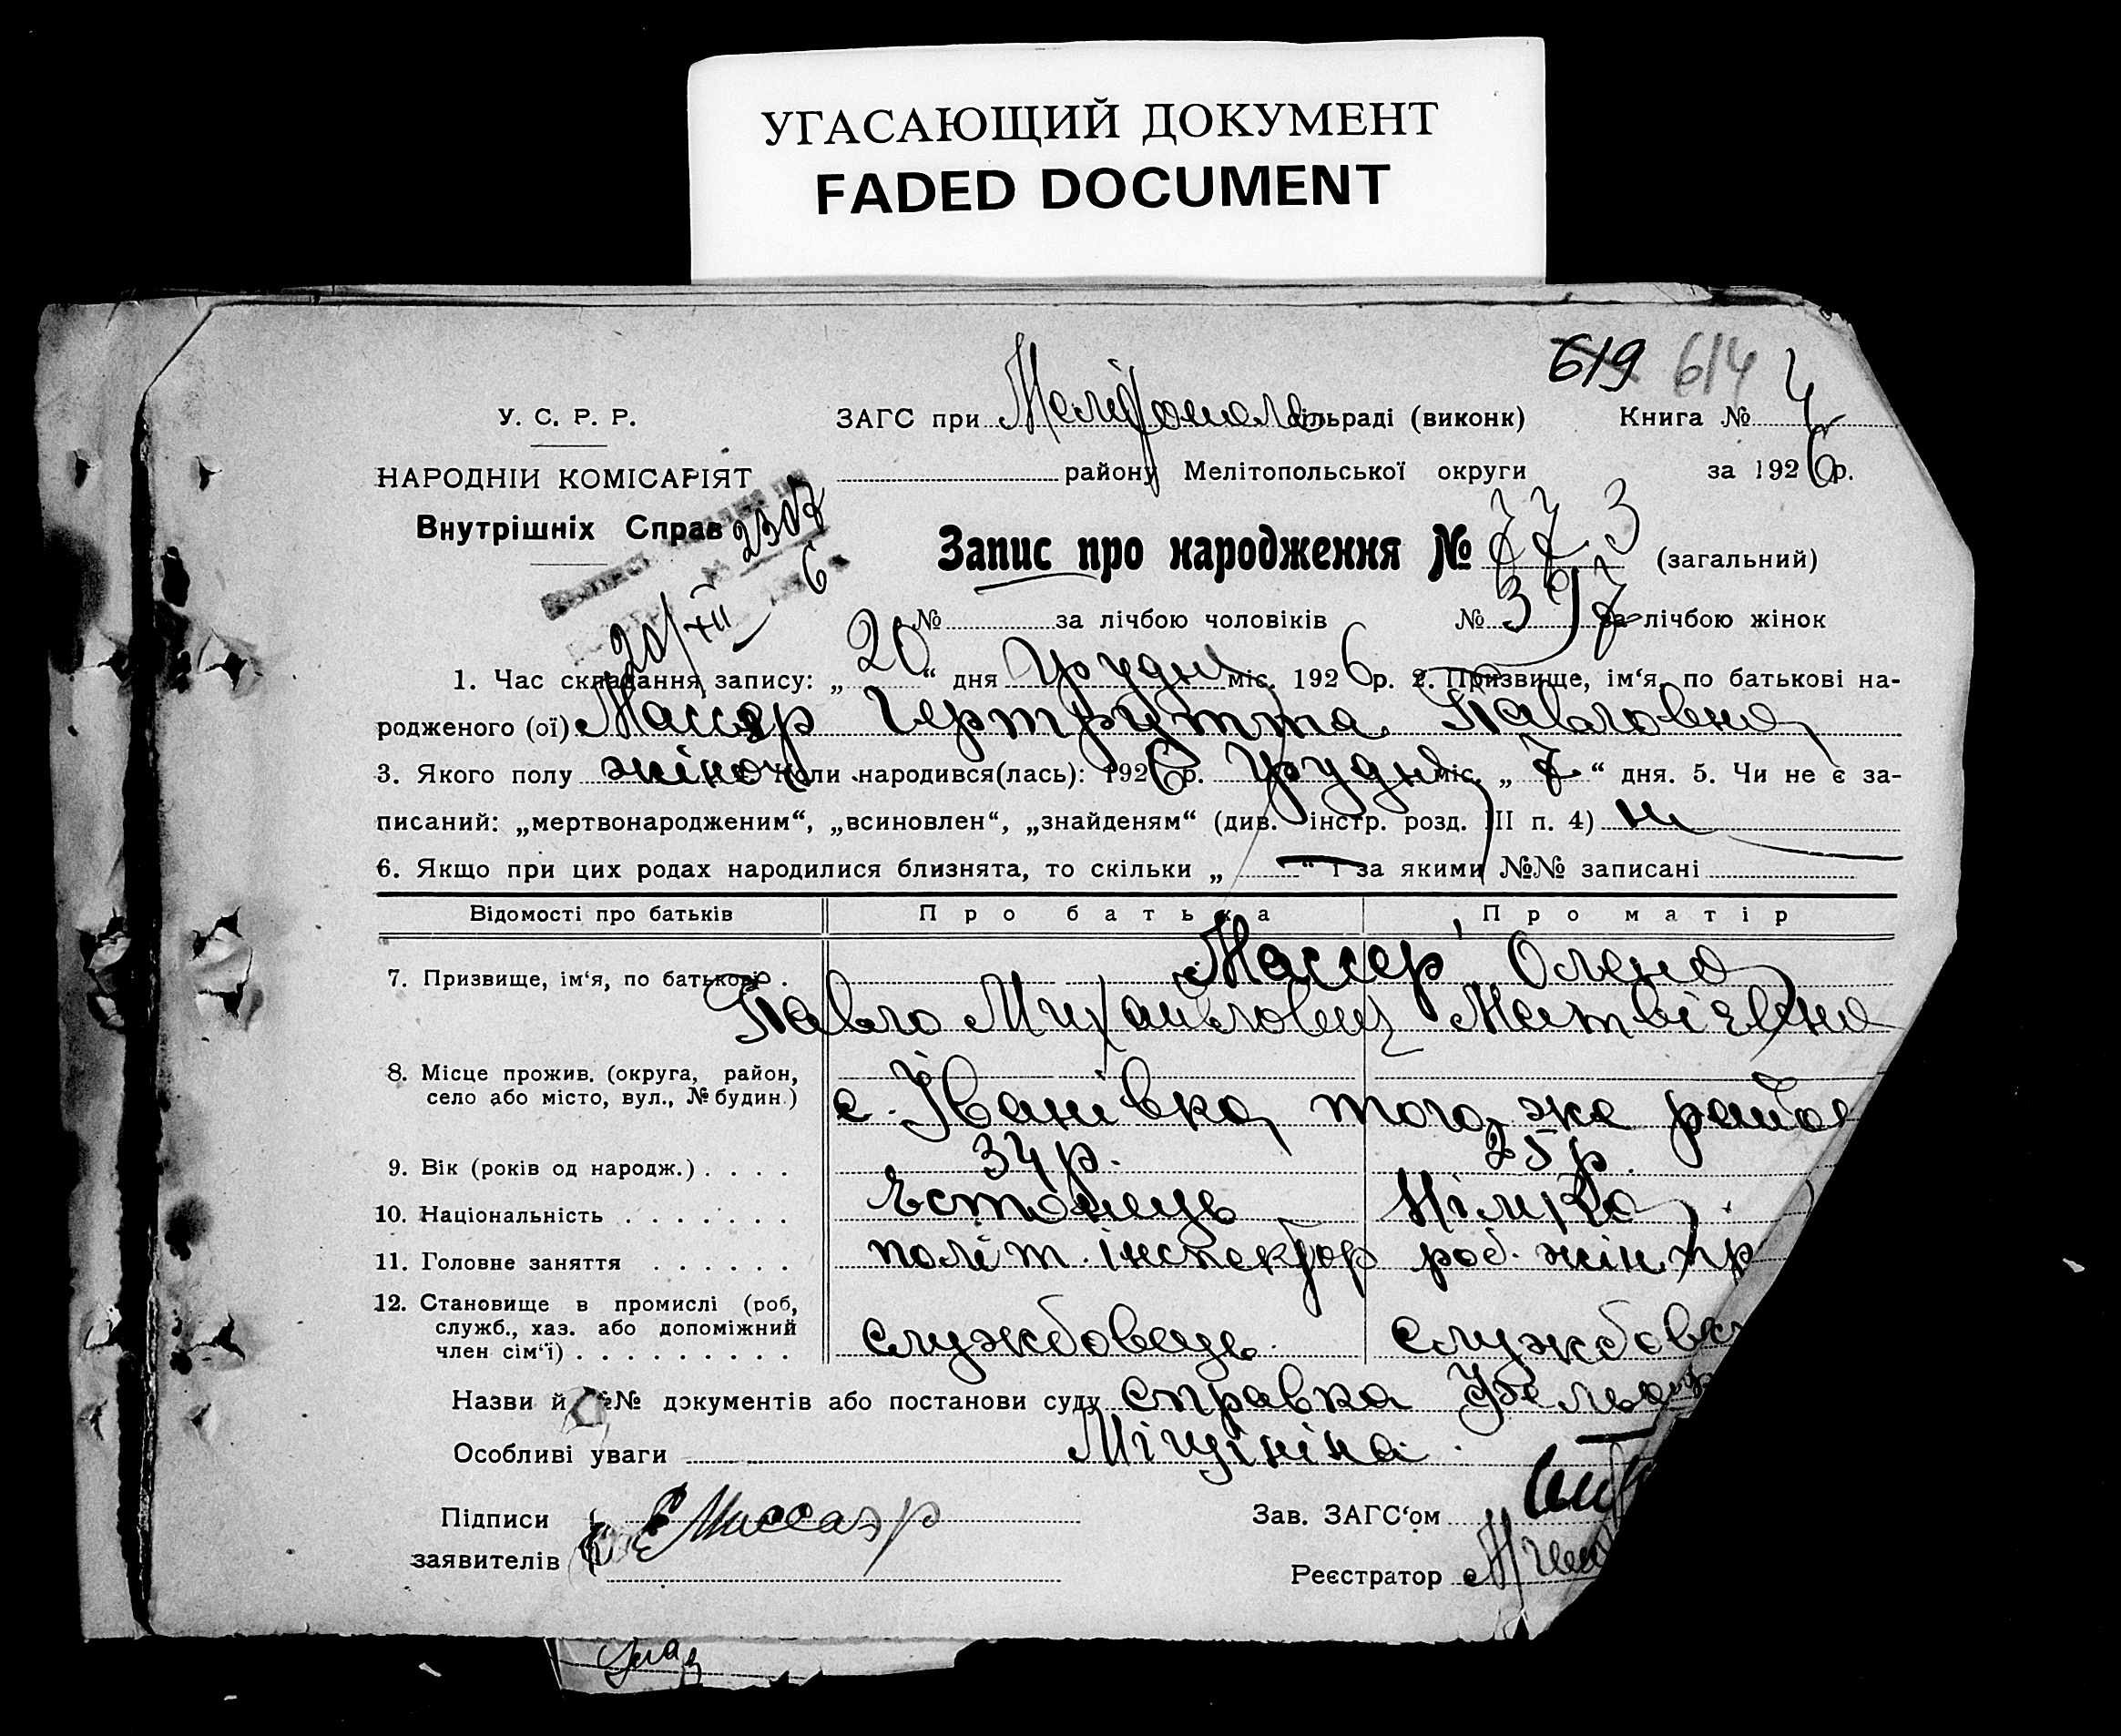 УГАСАЮЩИЙ ДОКУМЕНТ
FADED DOCUMENT
619 614
У. С. Р. Р.
ЗАГС при Мелітополь сільраді (виконк) Книга № 4
НАРОДНІЙ КОМІСАРІЯТ
району Мелітопольської округи за 1926 р.
Внутрішніх Справ
№ 2307
20/XII 6
Запис про народження № 773 (загальний)
№ за лічбою чоловіків № 397 за лічбою жінок
1. Час складання запису: „20“ дня Грудня міс. 1926 р. 2. Призвище, ім‘я, по батькові на-
родженого (ої) Массер Гертрутта Павловна
3. Якого полу жіноч Коли народився(лась): 1926 р. Грудня міс. „7“ дня. 5. Чи не є за-
писаний: „мертвонародженим“, „всиновлен“, „знайденям“ (див. інстр. розд. III п. 4) ні
6. Якщо при цих родах народилися близнята, то скільки „ “ і за якими №№ записані
Відомості про батьків Про батька Про матір
7. Призвище, ім‘я, по батькові . Массер Олена
Павло Михайлович Матвіївна
8. Місце прожив. (округа, район,
село або місто, вул., № будин.) с. Іванівка, того же район
9. Вік (років од народж.) . . . . 34 р. 25 р.
10. Національність . . . . . . . Естонець Німка
11. Головне заняття . . . . . . політ. інспектор роб. жін. пр
12. Становище в промислі (роб,
служб., хаз. або допоміжний
член сім‘ї) . . . . . . . . . службовець службовк
Назви й №№ документів або постанови суду справка
Особливі уваги Міщініна.
Підписи Е Массаэр
Зав. ЗАГС‘ом
заявителів
Реєстратор